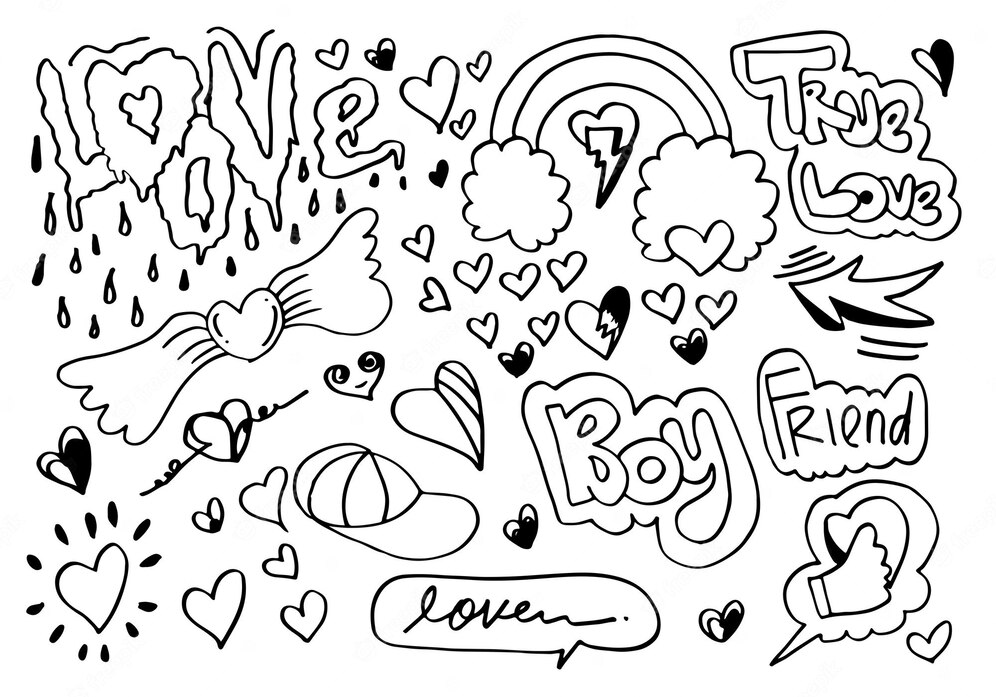 LOVe
TRUE
LOVE
BOY
FRIEND
love